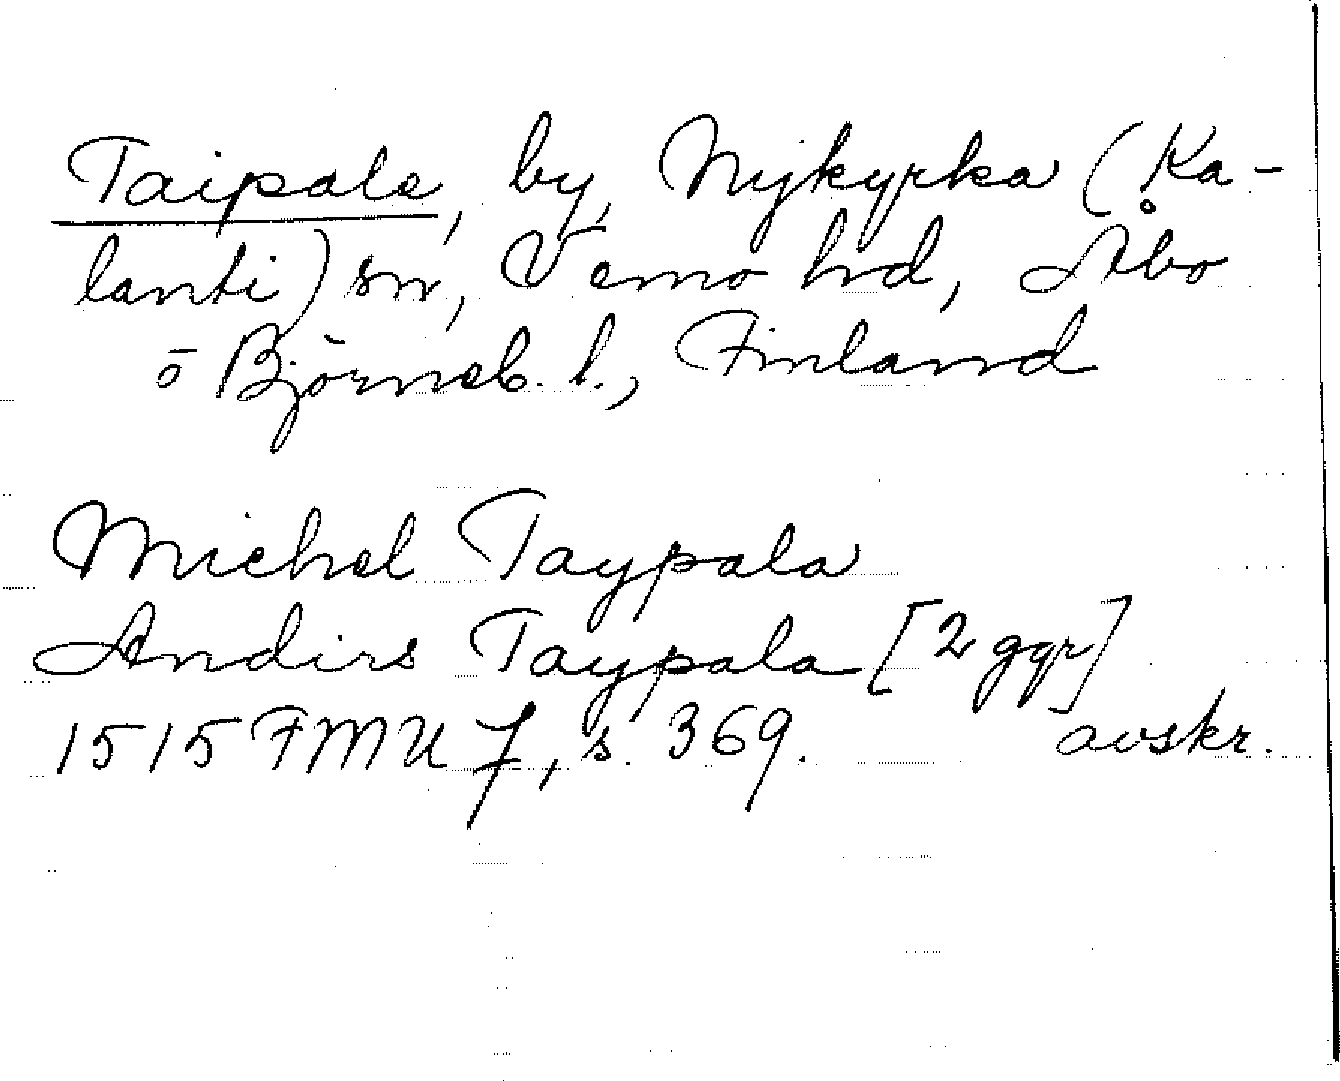 Taipale, by, Nykyrka (Ka-
lanti) sn, Vemo hd, Åbo
o Björneb. l., Finland
Michel Taypala
Andirs Taypala [2 ggr]
1515 FMU 7, s. 369. avskr.